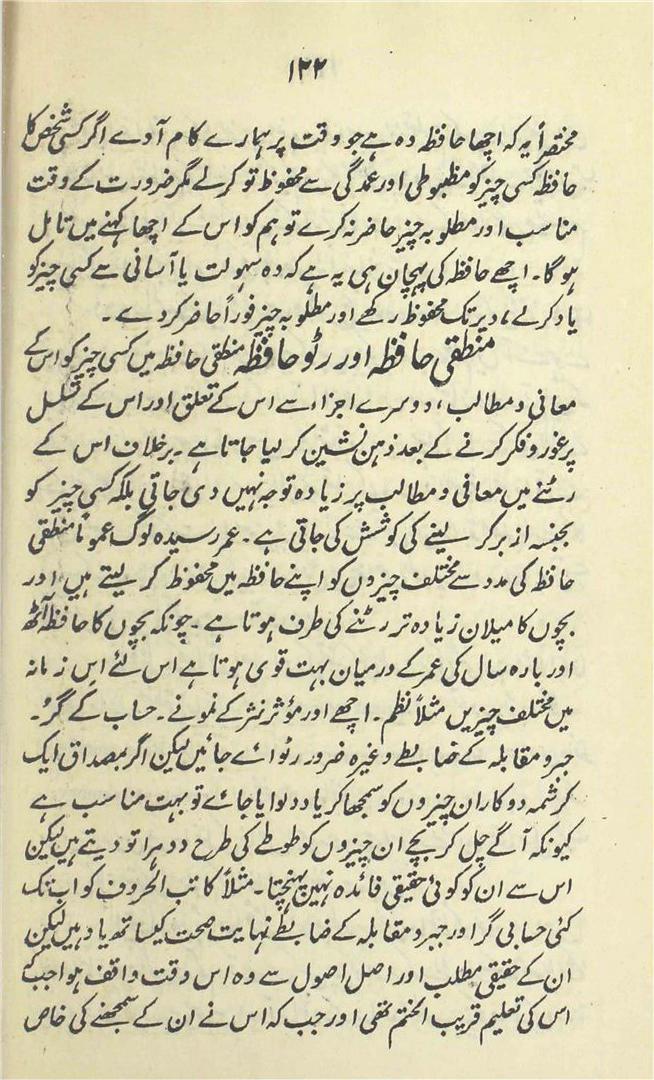 ۱۲۲
مختصراً یہ کہ اچھا حافظہ وہ ہے جو وقت پر ہمارے کام آوے اگر کسی شخص کا
حافظہ کسی چیز کو مظبوطی اور عمدگی سے محفوظ تو کرلے مگر ضرورت کے وقت
مناسب اور مطلوبہ چیز حاضر نہ کرے تو ہم کو اس کے اچھا کہنے میں تامل
ہوگا۔ اچھے حافظہ کی پہچان ہی یہ ہے کہ وہ سہولت یا آسانی سے کسی چیز کو
یاد کرلے، دیر تک محفوظ رکھے اور مطلوبہ چیز فوراً حاضر کردے۔
منطقی حافظہ اور رٹو حافظہ منطقی حافظہ میں کسی چیز کو اس کے
معانی و مطالب، دوسرے اجزاء سے اس کے تعلق اور اس کے تسلسل
پر غور و فکر کرنے کے بعد ذہن نشین کرلیا جاتا ہے۔ برخلاف اس کے
رٹنے میں معافی و مطالب پر زیادہ توجہ نہیں دی جاتی بلکہ کسی چیز کو
بجنسہ ازبر کر لینے کی کوشش کی جاتی ہے۔ عمر رسیدہ لوگ عموماً منطقی
حافظہ کی مدد سے مختلف چیزوں کو اپنے حافظہ میں محفوظ کر لیتے ہیں اور
بچوں کا میلان زیادہ تر رٹنے کی طرف ہوتا ہے۔ چونکہ بچوں کا حافظہ آٹھ
اور بارہ سال کی عمر کے درمیان بہت قوی ہوتا ہے اس لئے اس زمانہ
میں مختلف چیزیں مثلاً نظم۔ اچھے اور مؤثر نثر کے نمونے۔ حساب کے گُر۔
جبر و مقابلہ کے ضابطے وغیرہ ضرور رٹوائے جائیں لیکن اگر بمصداق ایک
کرشمہ دو کار ان چیزوں کو سمجھا کر یاد دلوایا جائے تو بہت مناسب ہے
کیونکہ آگے چل کر بچے ان چیزوں کو طوطے کی طرح دوہرا تو دیتے ہیں لیکن
اس سے ان کو کوئی حقیقی فائدہ نہیں پہنچتا۔ مثلاً کاتب الحروف کو اب تک
کئی حسابی گر اور جبر و مقابلہ کے ضابطے نہایت صحت کیساتھ یاد ہیں لیکن
ان کے حقیقی مطلب اور اصل اصول سے وہ اس وقت واقف ہوا جب کہ
اس کی تعلیم قریب الختم تھی اور جب کہ اس نے ان کے سمجھنے کی خاص